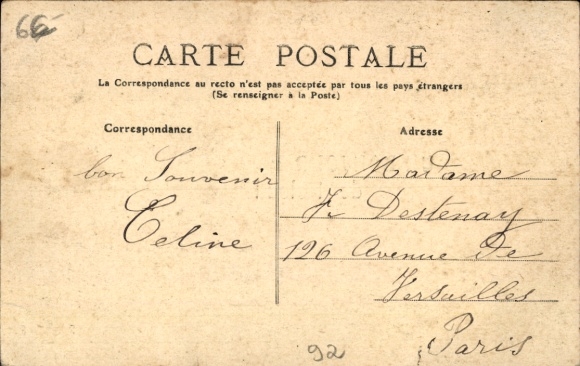 66
CARTE POSTALE
La Correspondance au recto n'est pas acceptée par tous les pays étrangers
(Se renseigner à la Poste)
Correspondance
bon Souvenir
Celine
Adresse
Madame
F Destenay
126 Avenue De
Versailles
Paris
92